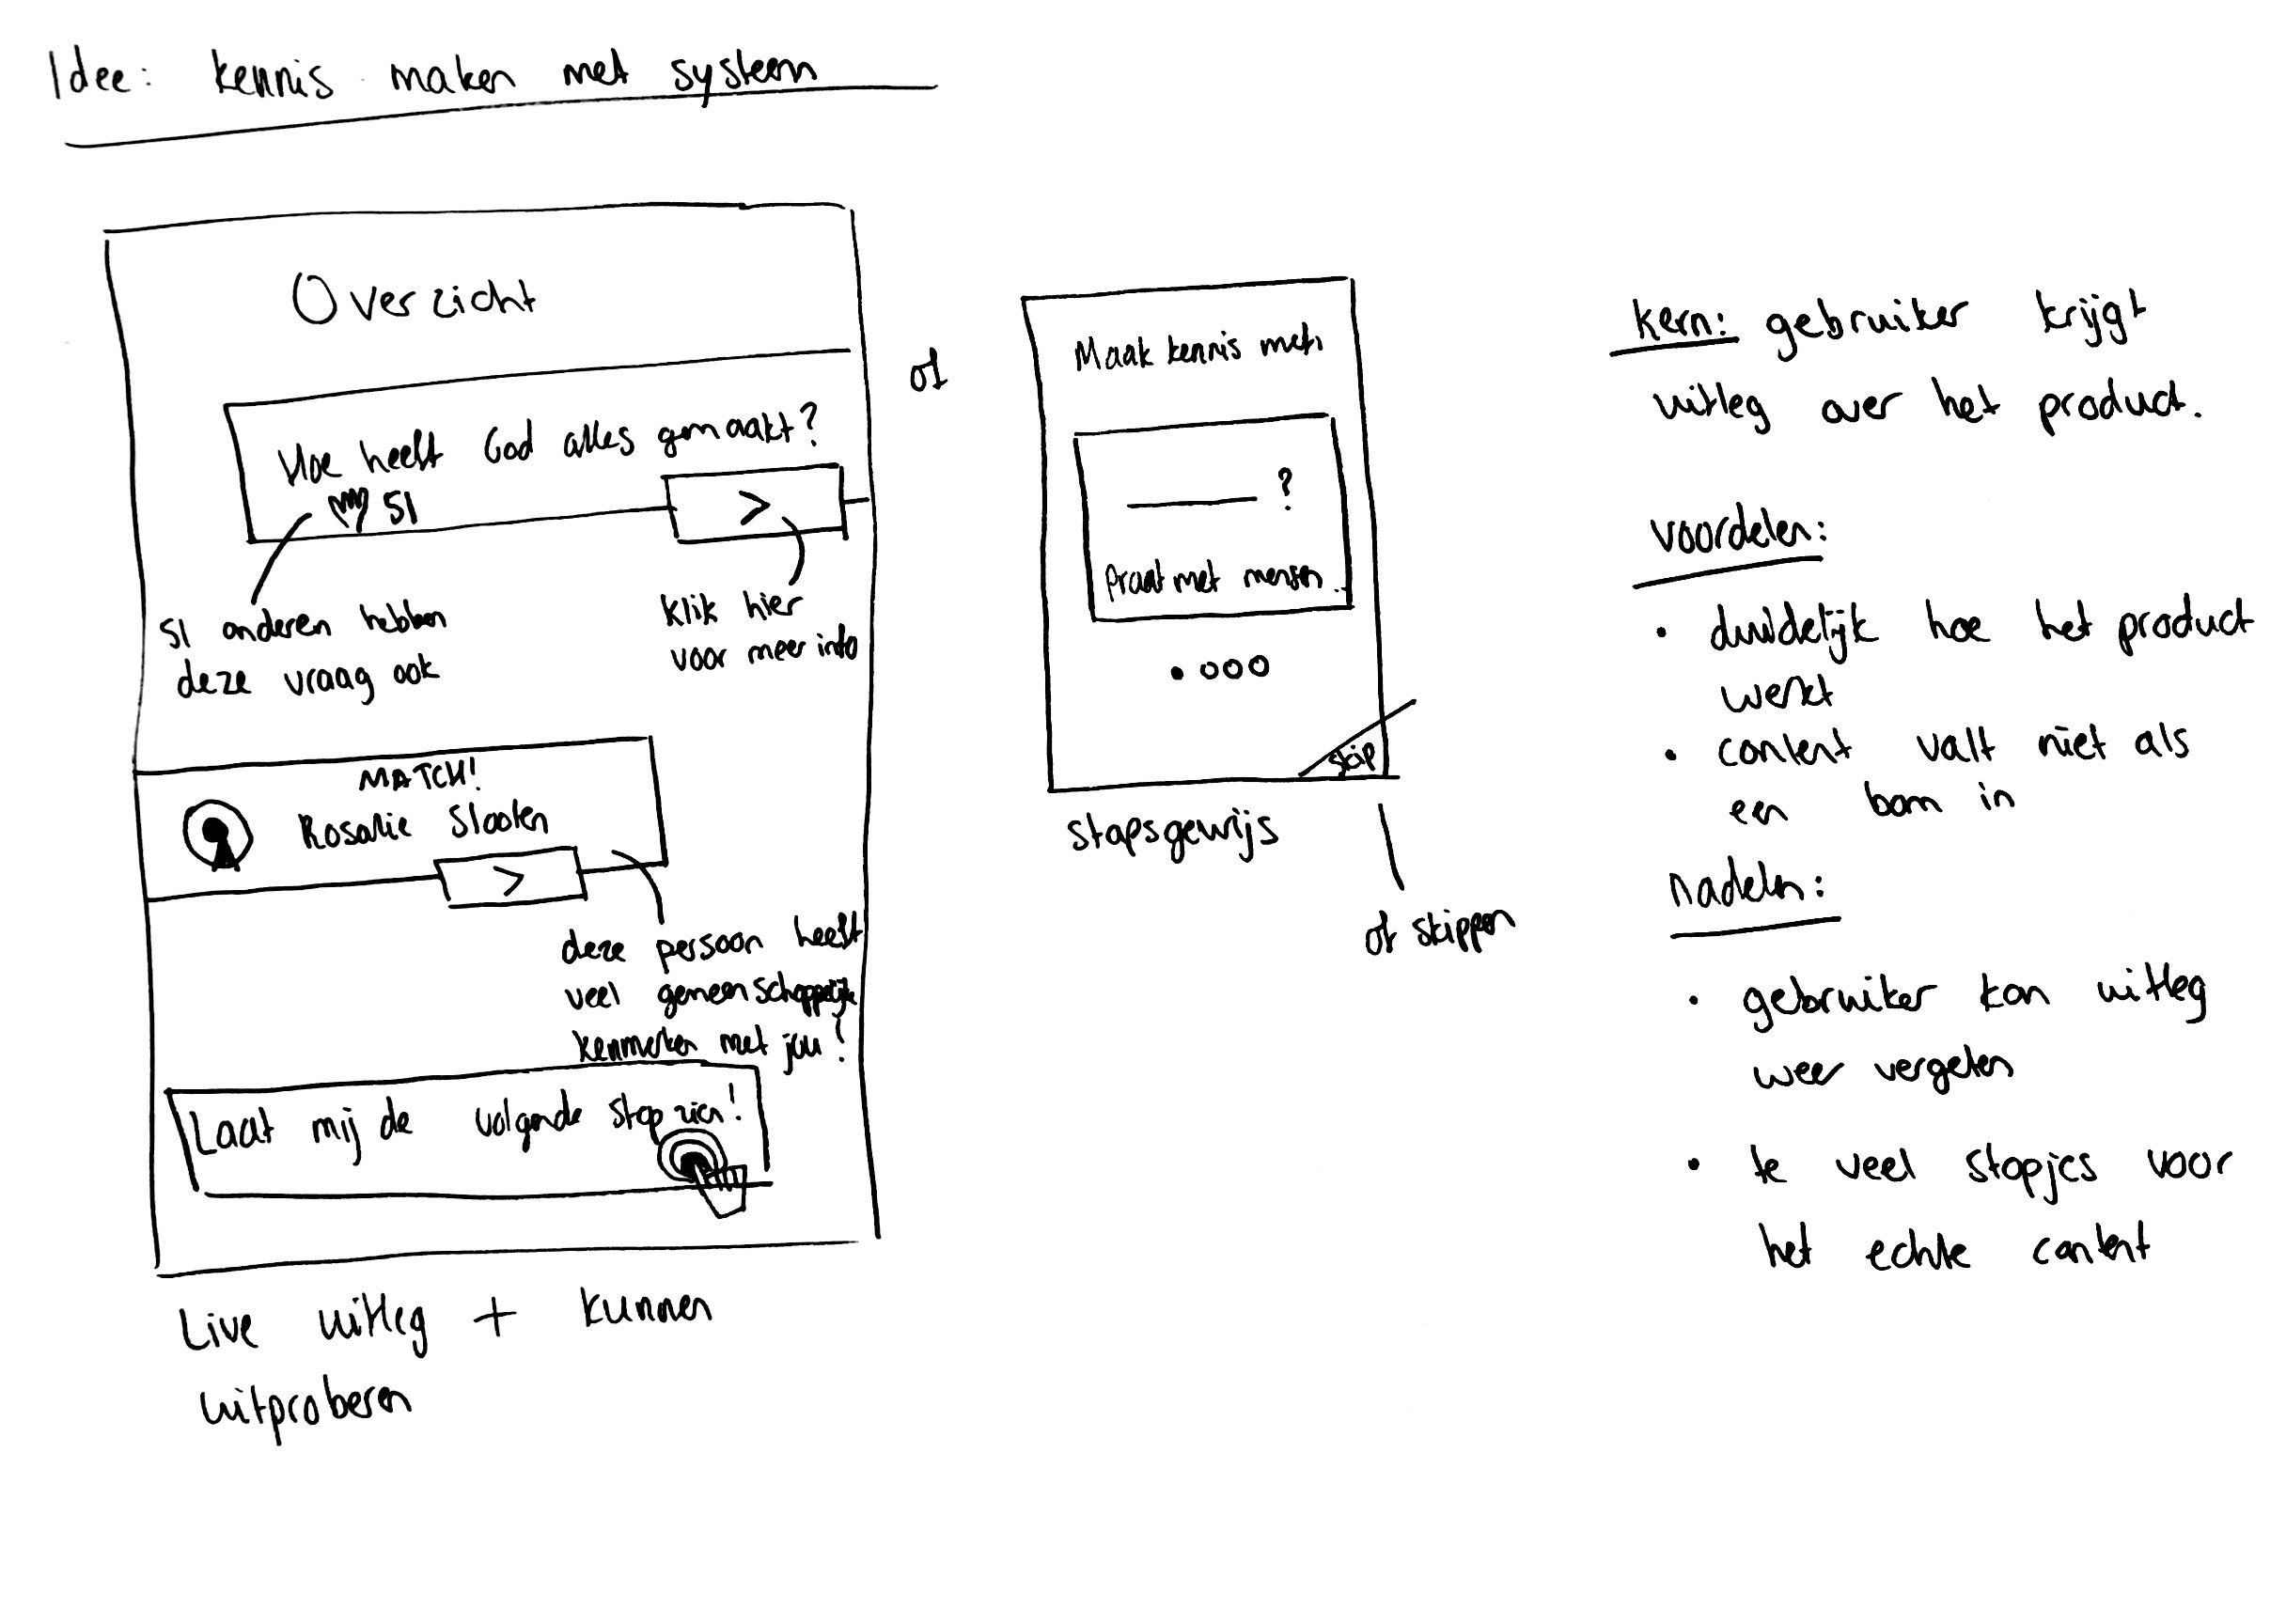 Idee: kennis maken met systeem
Overzicht
Hoe heeft God alles gemaakt?
51
>
51 anderen hebben
deze vraag ook
klik hier
voor meer info
MATCH!
Rosalie Slooten
>
deze persoon heeft
veel gemeenschappelijke
kenmerken met jou!
Laat mij de volgende stap zien!
Live uitleg + kunnen
uitproberen
of
Maak kennis met:
?
Praat met mensen ..
skip
stapsgewijs
of skippen
kern: gebruiker krijgt
uitleg over het product.
voordelen:
• duidelijk hoe het product
werkt
• content valt niet als
een bom in
nadelen:
• gebruiker kan uitleg
weer vergeten
• te veel stapjes voor
het echte content